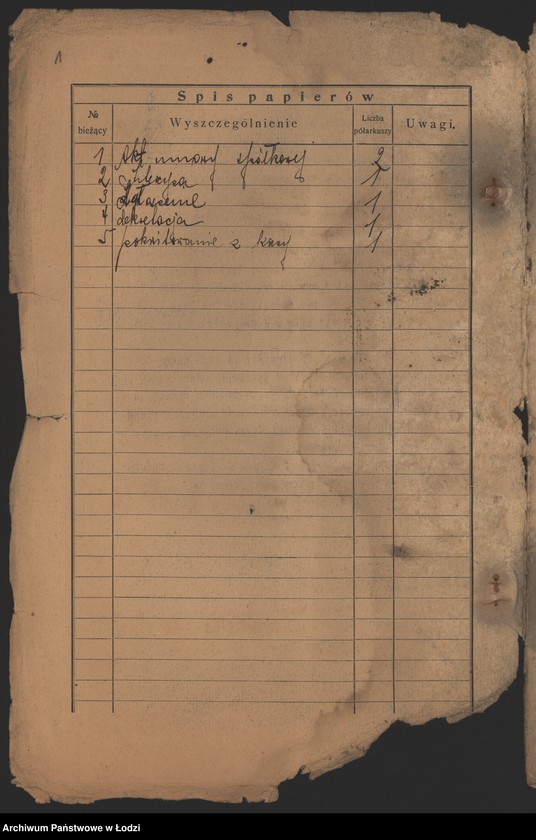 1
Spis papierów
№ bieżący
Wyszczególnienie
Liczba półarkuszy
Uwagi.
1 Akt umowy spółkowej 2
2 1
3 Zgłoszenie 1
4 deklaracja 1
5 pokwitowanie z kasy 1
Archiwum Państwowe w Łodzi